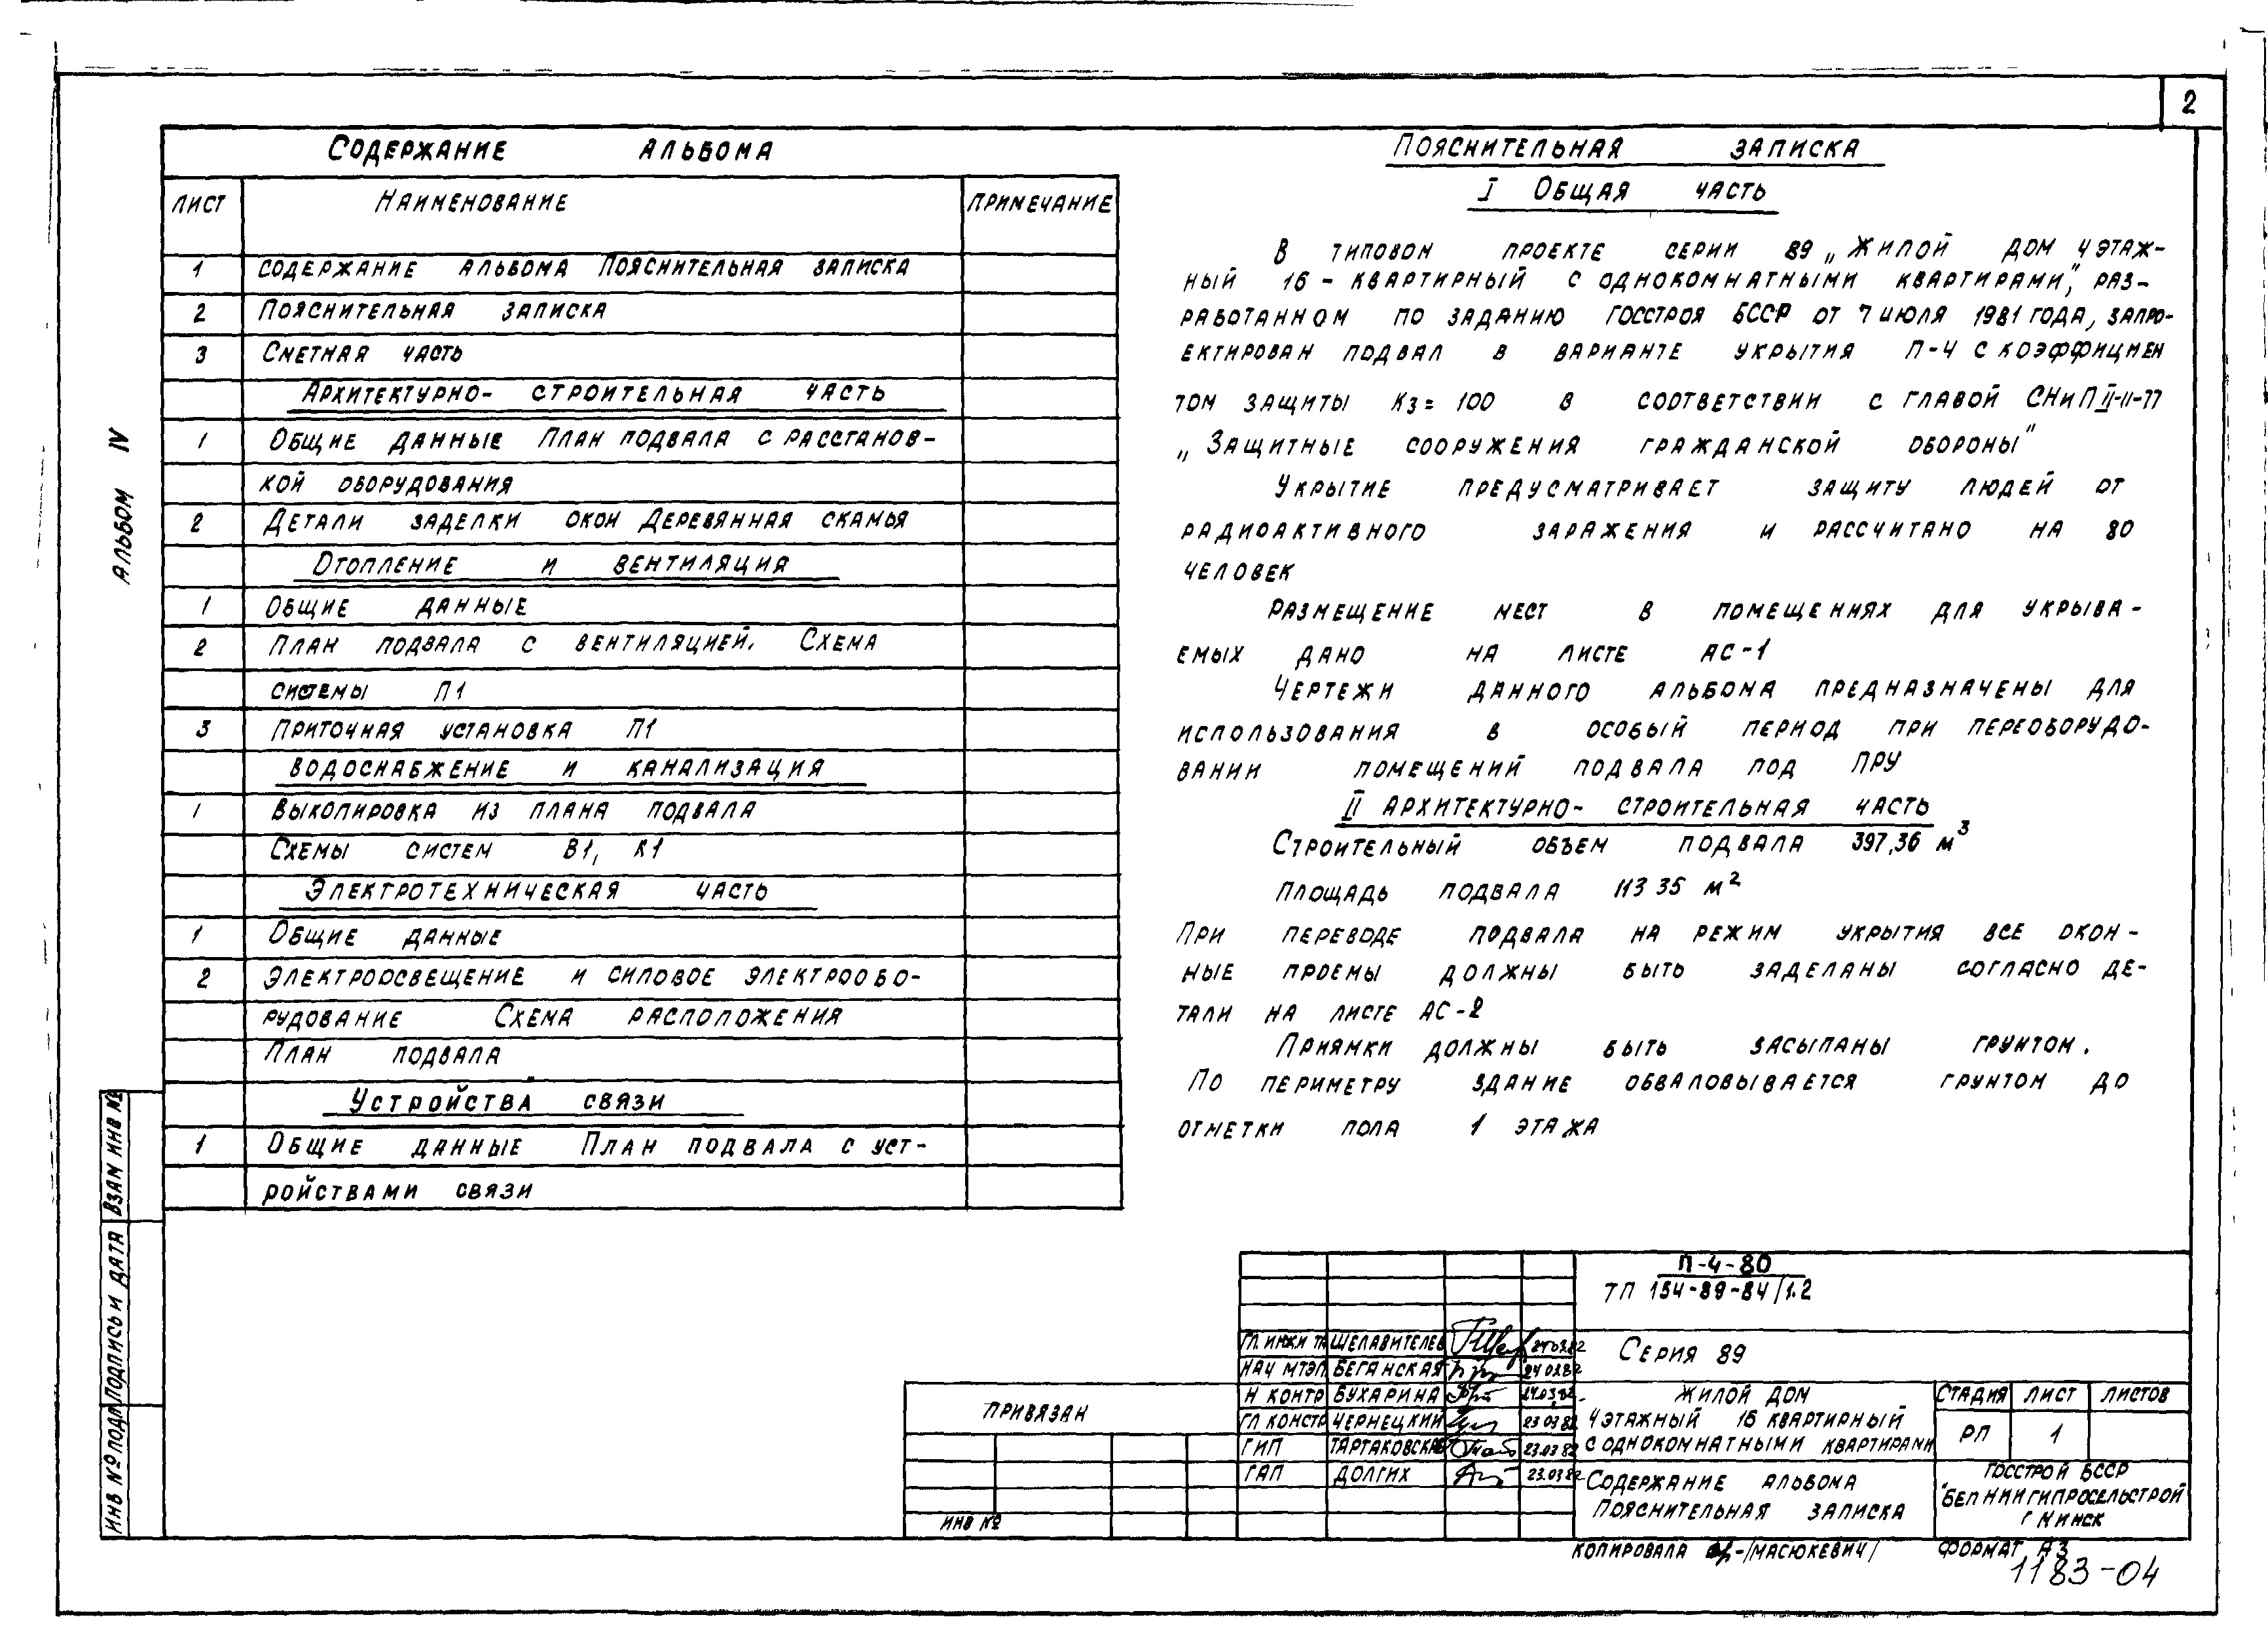 2
Содержание альбома
лист Наименование примечание
1 содержание альбома Пояснительная записка
2 Пояснительная записка
3 Сметная часть
Архитектурно- строительная часть
1 Общие данные План подвала с расстанов-
кой оборудования
2 Детали заделки окон Деревянная скамья
Отопление и вентиляция
1 Общие данные
2 План подвала с вентиляцией. Схема
системы П1
3 Приточная установка П1
Водоснабжение и канализация
1 Выкопировка из плана подвала
Схемы систем В1, К1
Электротехническая часть
1 Общие данные
2 Электроосвещение и силовое электрообо-
рудование Схема расположения
План подвала
Устройства связи
1 Общие данные План подвала с уст-
ройствами связи
Пояснительная записка
I Общая часть
В типовом проекте серии 89 „Жилой дом 4 этаж-
ный 16 - квартирный с однокомнатными квартирами", раз-
работанном по заданию Госстроя БССР от 7 июля 1981 года, запро-
ектирован подвал в варианте укрытия П-4 с коэффициен
том защиты Кз = 100 в соответствии с главой СНиП II-11-77
„Защитные сооружения гражданской обороны"
Укрытие предусматривает защиту людей от
радиоактивного заражения и рассчитано на 80
человек
Размещение мест в помещениях для укрыва-
емых дано на листе АС-1
Чертежи данного альбома предназначены для
использования в особый период при переоборудо-
вании помещений подвала под ПРУ
II Архитектурно- строительная часть
Строительный объем подвала 397,36 м³
Площадь подвала 113 35 м²
При переводе подвала на режим укрытия все окон-
ные проемы должны быть заделаны согласно де-
тали на листе АС-2
Приямки должны быть засыпаны грунтом.
По периметру здание обваловывается грунтом до
отметки пола 1 этажа
Альбом IV
Инв № подл Подпись и дата Взам инв №
П-4-80
ТП 154-89-84/1.2
Серия 89
Гл. инж и та Шелавителев 24 03.82
Нач МТЭП Беганская 24 03.82
Н контр Бухарина 24.03.82
Гл констр Чернецкий 23 03 82
ГИП Тартаковская 23.03 82
ГАП Долгих 23.03 82
Жилой дом
4 этажный 16 квартирный
с однокомнатными квартирами
Стадия Лист Листов
РП 1
Содержание альбома
Пояснительная записка
Госстрой БССР
"БелНИИгипросельстрой
г Минск
Привязан
Инв №
Копировала /Масюкевич/ Формат А3
1183-04